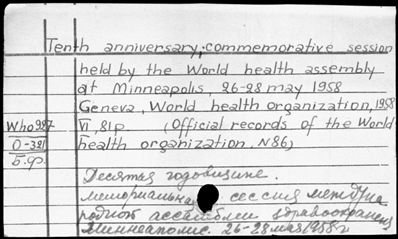 Tenth anniversary, commemorative session
held by the World health assembly
at Minneapolis, 26-28 may 1958
Geneva, World health organization, 1958
Who987
VI, 81p. (Official records of the World
0-321
health organization, N86)
б.ф.
Десятая годовщине.
мемориальная сессия междуна
родной ассамблеи здравоохранения
Миннеаполис. 26-28 мая 1958г